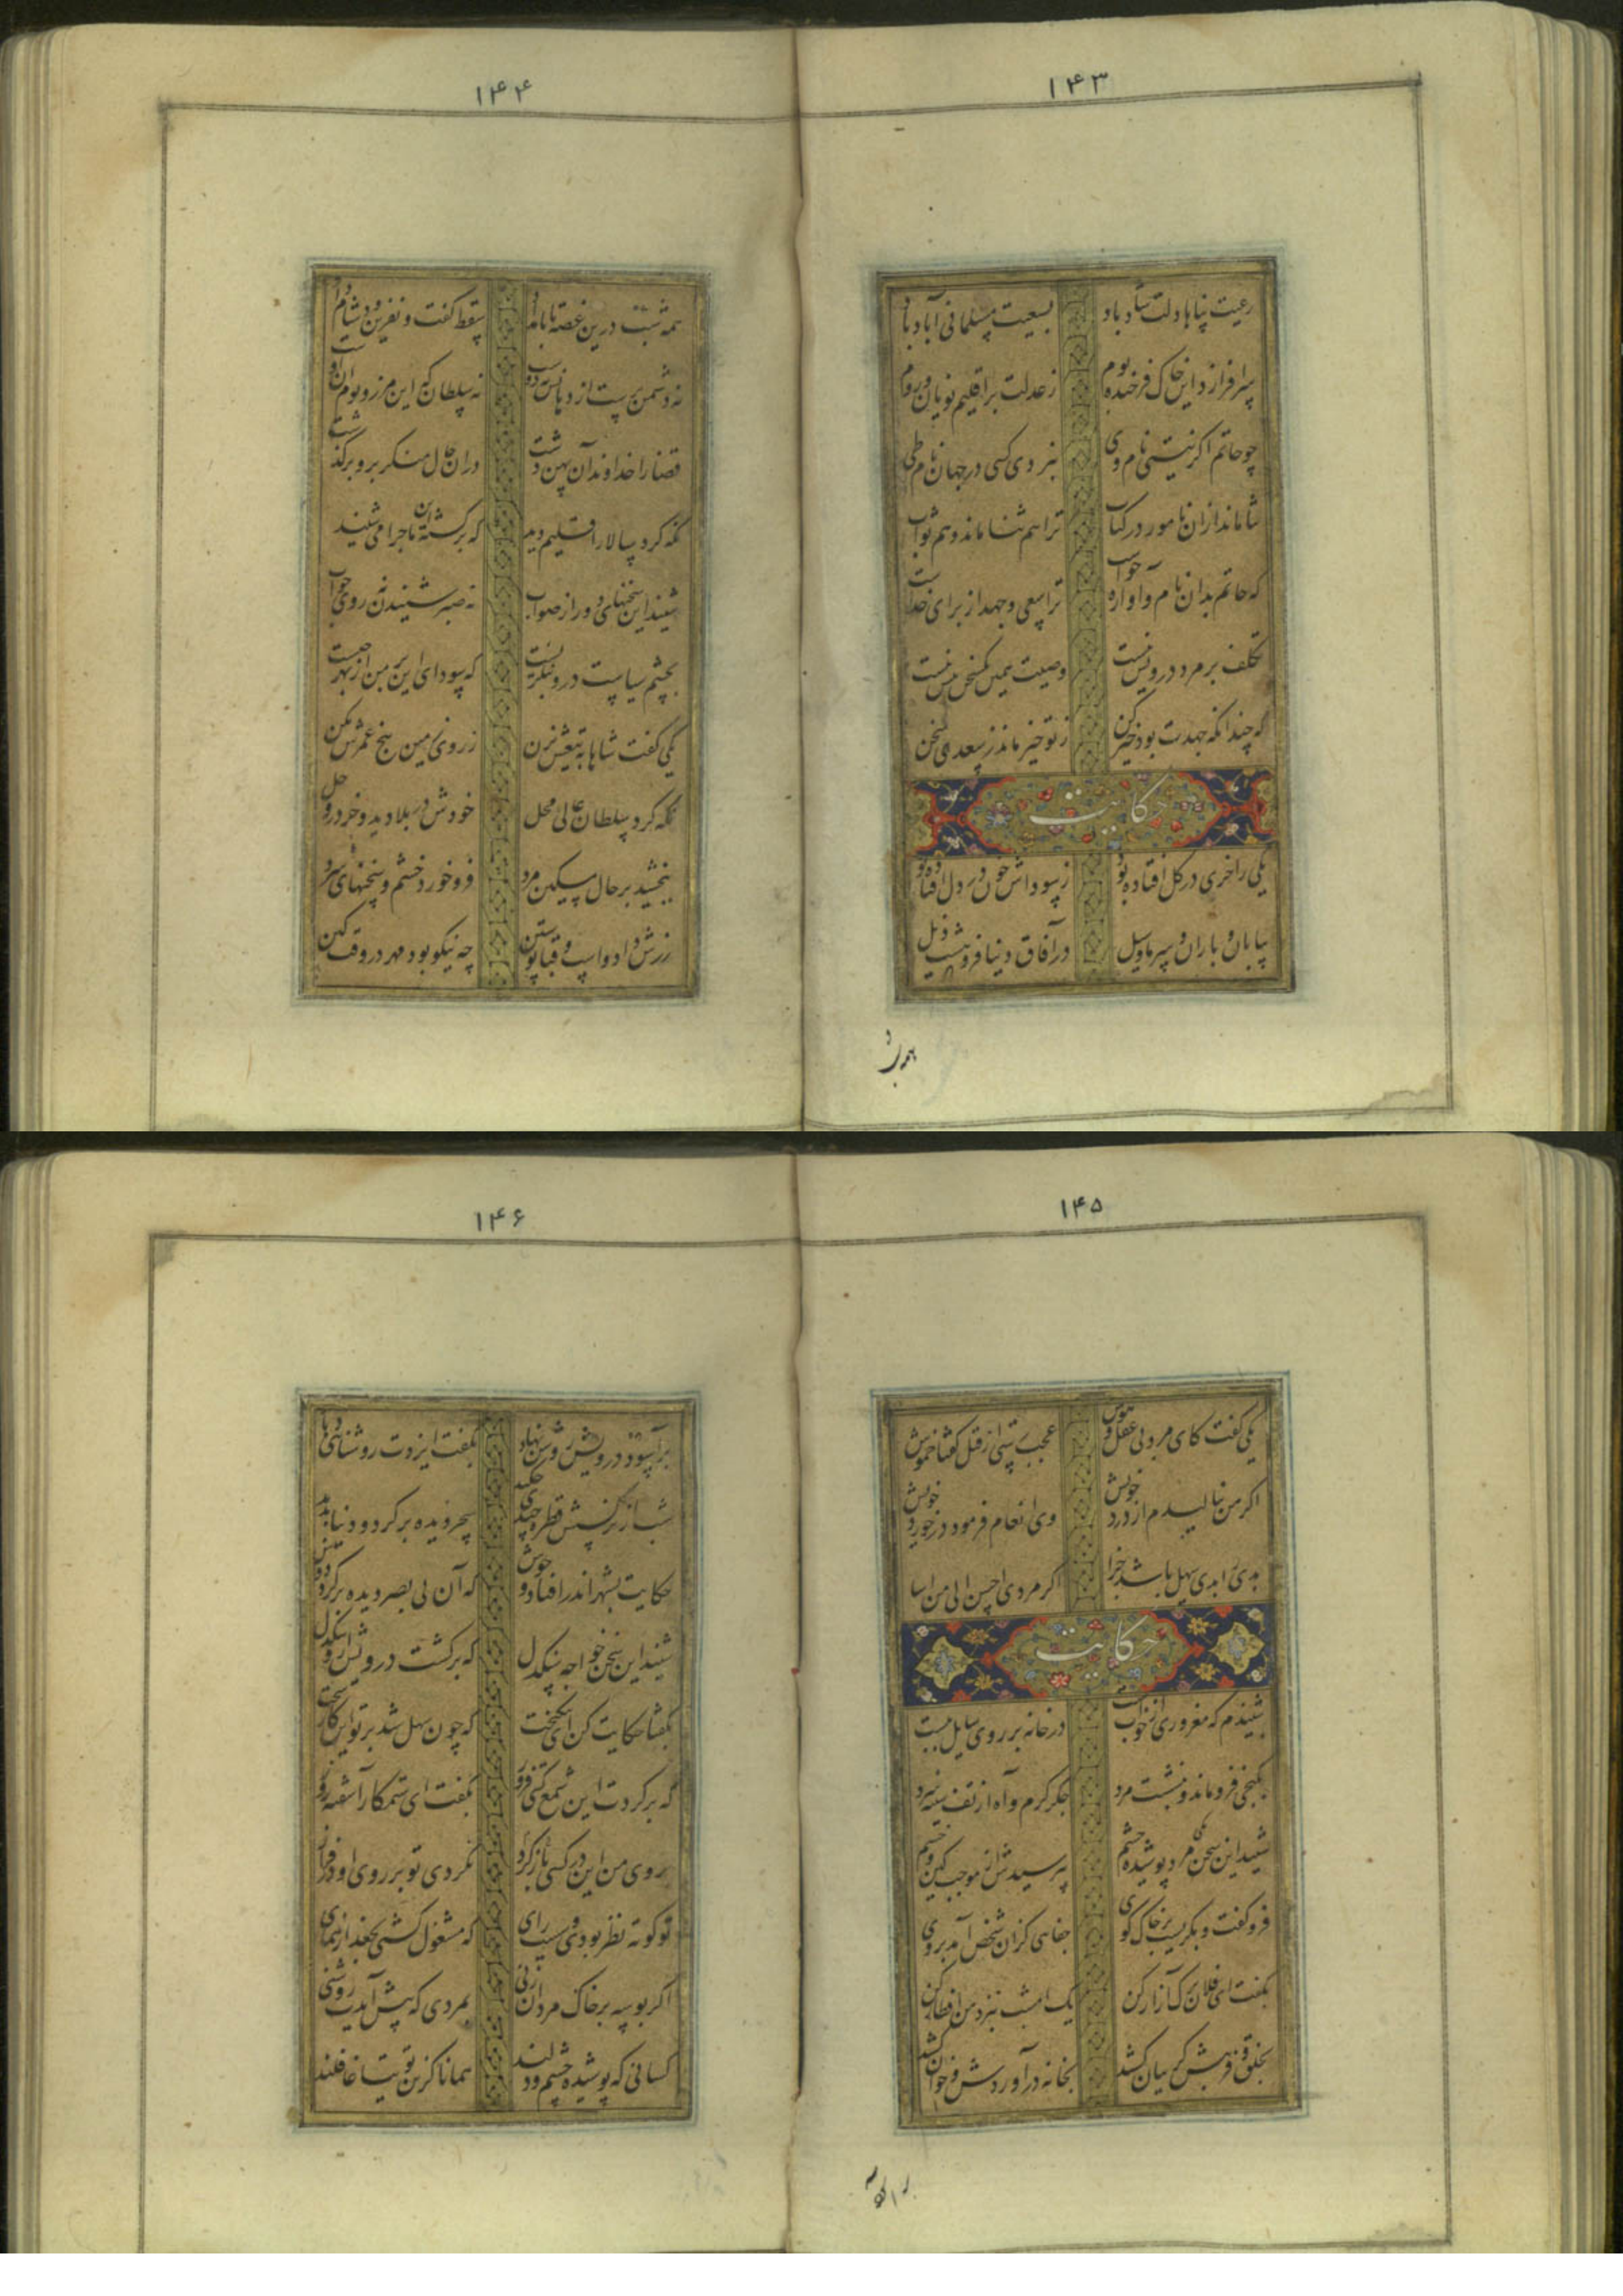 ۱۴۳
رعیت پناها دلت شاد باد بسعیت مسلمانی آباد باد
سرافرازد این خاک فرخنده بوم ز عدلت بر اقلیم یونان و روم
چو حاتم اگر نیستی نام وی نبردی کسی در جهان نام طی
ثنا ماند از آن نامور در کتاب ترا هم ثنا ماند و هم ثواب
که حاتم بدان نام و آوازه خواست ترا سعی و جهد از برای خداست
تکلف بر مرد درویش نیست وصیت همین یکسخن بیش نیست
که چندانکه جهدت بود خیر کن ز تو خیر ماند ز سعدی سخن
حکایت
یکی را خری در گل افتاده بود ز سوداش خون در دل افتاده بود
بیابان و باران و سرما و سیل در آفاق دنیا فروهشته ذیل
همه شب
۱۴۴
همه شب درین غصه تا بامداد سقط گفت و نفرین و دشنام داد
نه دشمن برست از زبانش نه دوست نه سلطان که این مرز و بوم آن اوست
قضا را خداوند آن پهن دشت در آن حال منکر برو برگذشت
نگه کرد سالار اقلیم دید که بر کشته آن ماجرا می شنید
شنید این سخنهای دور از صواب نه صبر شنیدن نه روی جواب
بچشم سیاست درو بنگریست که سودای این بر من از بهر چیست
یکی گفت شاها به تیغش بزن ز روی زمین بیخ عمرش بکن
نگه کرد سلطان عالی محل خودش در بلا دید و خر در وحل
ببخشید بر حال مسکین مرد فرو خورد خشم و سخنهای سرد
زرش داد و اسب و قبا پوستین چه نیکو بود مهر در وقت کین
۱۴۵
یکی گفت کای مرد بی عقل و هوش عجب رستی از قتل گفتا خموش
اگر من بنالیدم از درد خویش وی انعام فرمود در خورد خویش
بدی را بدی سهل باشد جزا اگر مردی احسن الی من اسا
حکایت
شنیدم که مغروری از خواب مست در خانه بر روی سایل ببست
بکنجی فرو ماند و بنشست مرد جگر گرم و آه از تف سینه سرد
شنید این سخن یکی مرد پوشیده چشم بپرسیدش از موجب کین و خشم
فرو گفت و بگریست بر خاک کوی جفایی کزان شخص آمد بروی
بگفت ای فلان ترک آزار کن یک امشب نبزد من افطار کن
بخلق و فریبش گریبان کشید بخانه در آوردش و خوان کشید
بر آسود
۱۴۶
بر آسود درویش روشن نهاد بگفت ایزدت روشنائی دهاد
شب از نرگسش قطره چندی چکید سحر دیده بر کرد و دنیا بدید
حکایت بشهر اندر افتاد و جوش که آن بی بصر دیده بر کرد دوش
شنید این سخن خواجه سنگدل که برگشت درویش ازو تنگدل
بگفتا حکایت کن ای نیکبخت که چون سهل شد بر تو این کار سخت
که بر کردت این شمع گیتی فروز بگفت ای ستمکار آشفته روز
بروی من این در کسی باز کرد که کردی تو بر روی او در فراز
تو کوته نظر بودی و سست رای که مشغول گشتی بجغد از همای
اگر بوسه بر خاک مردان زنی بمردی که پیش آیدت روشنی
کسانی که پوشیده چشم و دلند همانا کزین توتیا غافلند